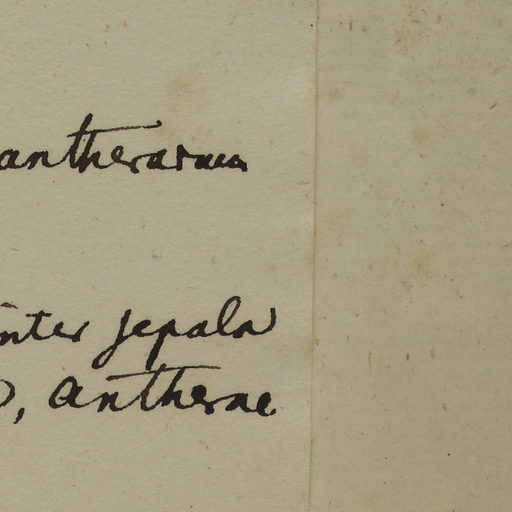 antherarum
inter sepala
, antherae